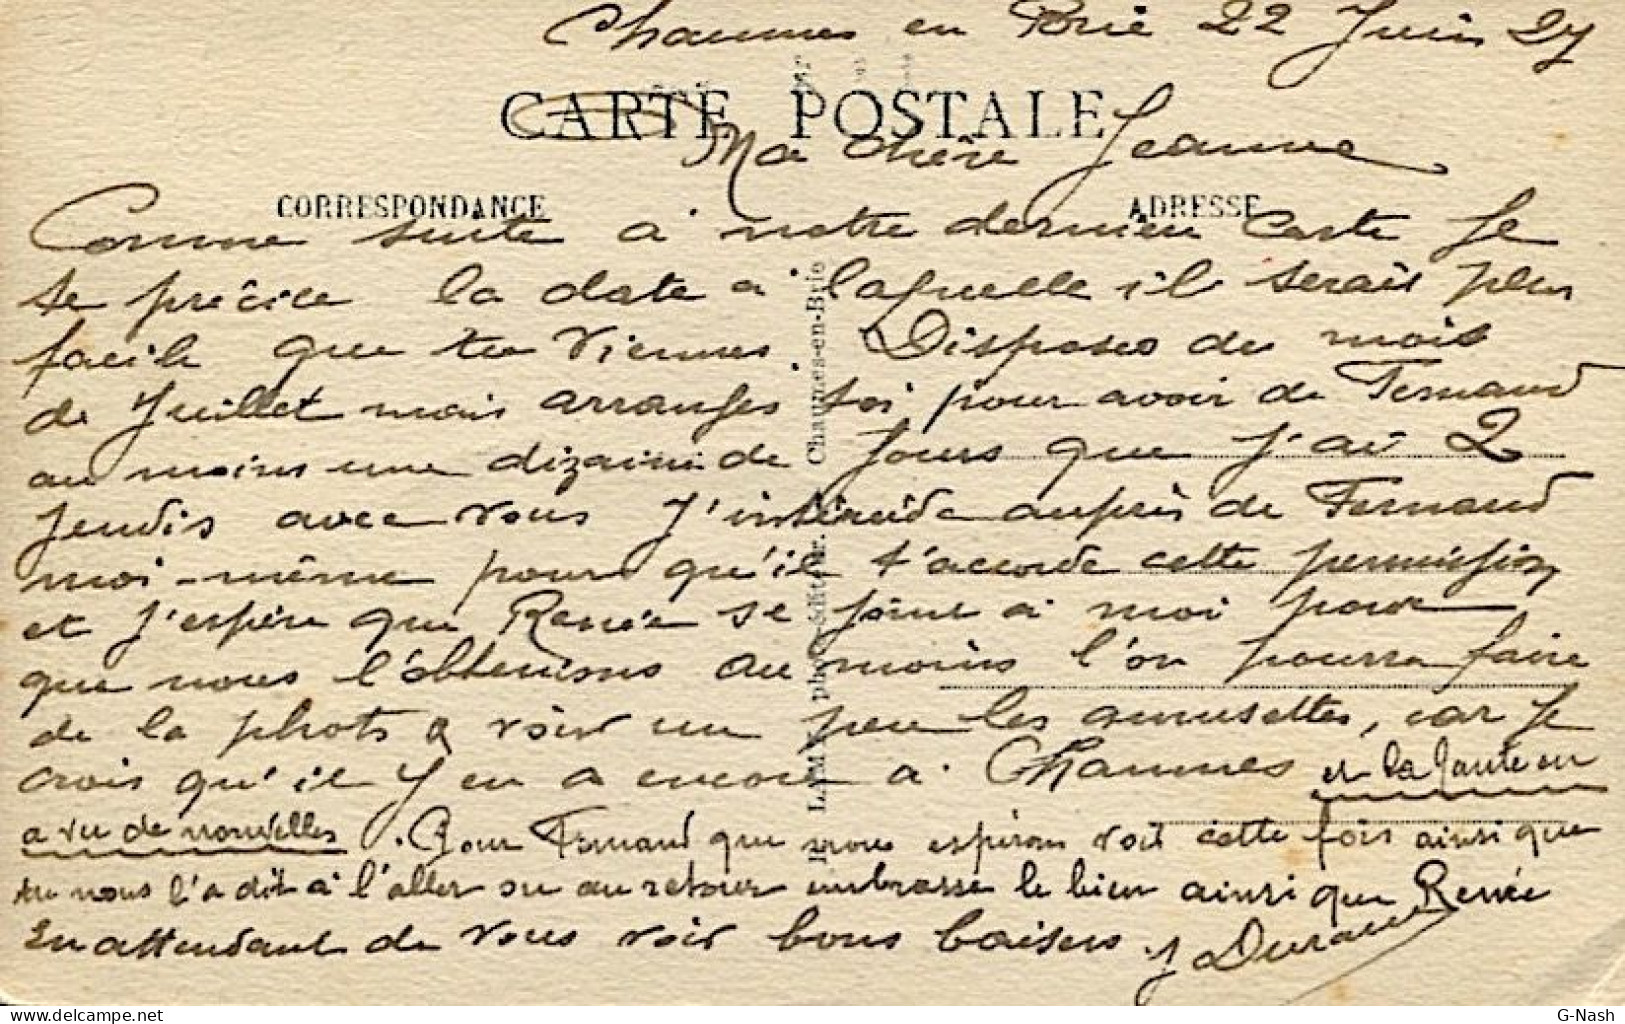 Chaumes en Brie 22 Juin 27
CARTE POSTALE
Ma chère Jeanne
CORRESPONDANCE
ADRESSE
Comme suite à notre dernière Carte Je
te précice la date a laquelle il serait plus
facile que tu Viennes. Disposes du mois
de Juillet mais arranges toi pour avoir de Fernand
au moins une dizaine de Jours que J'ai 2
Jeudis avec vous J'intércéde auprès de Fernand
moi-même pour qu'il t'accorde cette permission
et J'espère que Renée se joint a moi pour
que nous l'obtenions au moins l'on pourra faire
de la photo & voir un peu les amusettes, car Je
crois qu'il Y en a encore a Chaumes et la Tante en
a vu de nouvelles. Pour Fernand que nous espérons voir cette fois ainsi que
tu nous l'a dit a l'aller ou au retour embrasse le bien ainsi que Renée
En attendant de vous voir bons baisers J Durand
L. M. phot. éditeur. Chaumes-en-Brie
© G-Nash